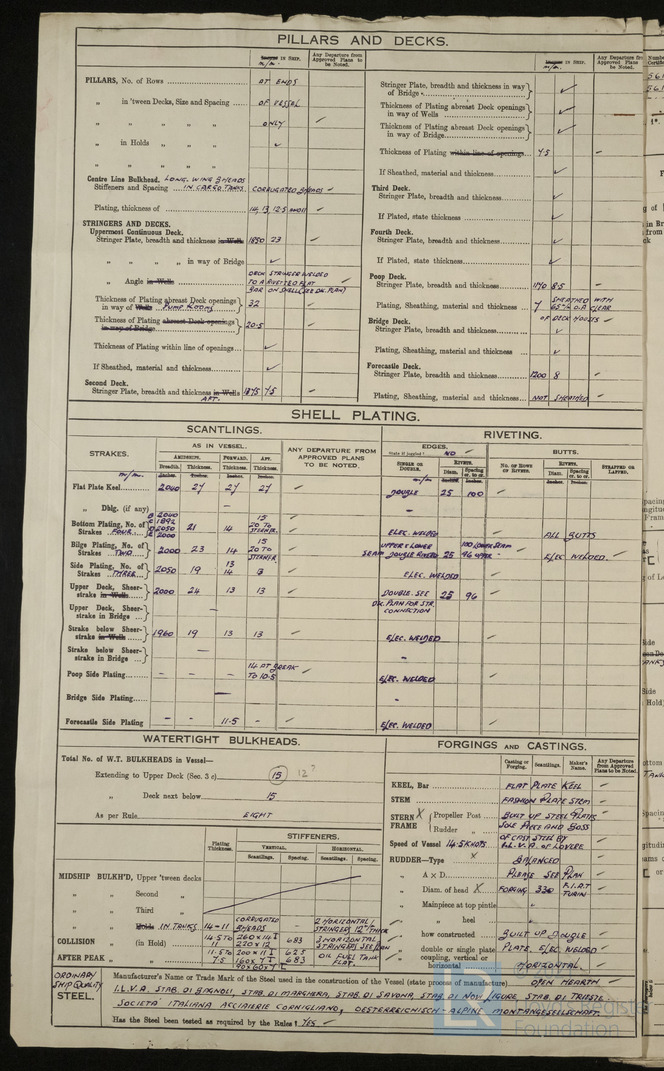 PILLARS AND DECKS.
in Ship. m/m. Any Departure from Approved Plans to be Noted.
PILLARS, No. of Rows AT ENDS
„ in 'tween Decks, Size and Spacing OF VESSEL
„ „ „ ONLY ✓
„ in Holds ✓
„ „ „
Centre Line Bulkhead. LONG. WING BHEADS
Stiffeners and Spacing IN CARGO TANKS. CORRUGATED BHEADS ✓
Plating, thickness of 14, 13, 12.5 AND 11 ✓
STRINGERS AND DECKS.
Uppermost Continuous Deck.
Stringer Plate, breadth and thickness in Wells 1850 23 ✓
„ „ „ „ in way of Bridge ✓
„ Angle in Wells DECK STRINGER WELDED TO A RIVETTED FLAT BAR ON SHELL (SEE DK. PLAN) ✓
Thickness of Plating abreast Deck openings in way of Wells PUMP ROOMS 32 ✓
Thickness of Plating abreast Deck openings in way of Bridge 20.5 ✓
Thickness of Plating within line of openings ✓
If Sheathed, material and thickness ✓
Second Deck.
Stringer Plate, breadth and thickness in Wells 1875 7.5 ✓
AFT.
in Ship. m/m. Any Departure from Approved Plans to be Noted.
Stringer Plate, breadth and thickness in way of Bridge ✓
Thickness of Plating abreast Deck openings in way of Wells ✓
Thickness of Plating abreast Deck openings in way of Bridge ✓
Thickness of Plating within line of openings 7.5 ✓
If Sheathed, material and thickness ✓
Third Deck.
Stringer Plate, breadth and thickness ✓
If Plated, state thickness ✓
Fourth Deck.
Stringer Plate, breadth and thickness ✓
If Plated, state thickness ✓
Poop Deck.
Stringer Plate, breadth and thickness 1170 8.5 ✓
Plating, Sheathing, material and thickness 7 SHEATHED WITH 65 m/m O.P. CLEAR OF DECK HOUSES ✓
Bridge Deck.
Stringer Plate, breadth and thickness ✓
Plating, Sheathing, material and thickness ✓
Forecastle Deck.
Stringer Plate, breadth and thickness 1200 8 ✓
Plating, Sheathing, material and thickness NOT SHEATHED ✓
SHELL PLATING.
SCANTLINGS.
RIVETING.
STRAKES.
AS IN VESSEL.
Amidships. Forward. Aft.
Breadth. Thickness. Thickness. Thickness.
ANY DEPARTURE FROM APPROVED PLANS TO BE NOTED.
EDGES.
State if joggled? NO ✓
SINGLE OR DOUBLE. RIVETS. Diam. Spacing cr. to cr.
BUTTS.
No. of Rows of Rivets. RIVETS. Diam. Spacing cr. to cr. STRAPPED OR LAPPED.
m/m. Inches.
Flat Plate Keel 2040 27 27 27 ✓ DOUBLE 25 100
„ Dblg. (if any) — —
Bottom Plating, No. of Strakes FOUR B 2040 C 1892 D 2050 E 2000 21 14 15 20 TO STERNFR. ✓ ELEC. WELDED ALL BUTTS
Bilge Plating, No. of Strakes TWO 2000 23 14 15 20 TO STERNFR ✓ UPPER & LOWER SEAM DOUBLE RIVETED 25 100 LOWER SEAM 96 UPPER „ ELEC WELDED. ✓
Side Plating, No. of Strakes THREE 2050 19 13 14 13 ✓ ELEC. WELDED
Upper Deck, Sheerstrake in Wells 2000 24 13 13 ✓ DOUBLE. SEE DK. PLAN FOR STR. CONNECTION 25 96 ✓
Upper Deck, Sheerstrake in Bridge —
Strake below Sheerstrake in Wells 1960 19 13 13 ✓ ELEC. WELDED ✓
Strake below Sheerstrake in Bridge — —
Poop Side Plating - - - 14 AT BREAK TO 10.5 ✓ ELEC. WELDED ✓
Bridge Side Plating —
Forecastle Side Plating - - 11.5 ✓ ELEC. WELDED ✓
WATERTIGHT BULKHEADS.
Total No. of W.T. BULKHEADS in Vessel—
Extending to Upper Deck (Sec. 3 c) 15 12?
„ Deck next below 15
As per Rule EIGHT
Plating Thickness. STIFFENERS.
VERTICAL. HORIZONTAL.
Scantlings. Spacing. Scantlings. Spacing.
MIDSHIP BULKH'D, Upper 'tween decks
„ „ Second „
„ „ Third „
„ „ Holds IN TANKS 14-11 CORRUGATED BHEADS - 2 HORIZONTAL STRINGERS 12 THICK ✓
COLLISION „ (in Hold) 14.5 TO 11 260 x 14 I 220 x 12 683 3 HORIZONTAL STRINGERS SEE PLAN ✓
AFTER PEAK „ „ 11.5 TO 7.5 200 x 11 I 160 x 7 I 90x60x7 L 625 683 OIL FUEL TANK FLAT. ✓
FORGINGS AND CASTINGS.
Casting or Forging. Scantlings. Maker's Name. Any Departure from Approved Plans to be Noted.
KEEL, Bar FLAT PLATE KEEL ✓
STEM FASHION PLATE STEM ✓
STERN FRAME X Propeller Post BUILT UP STEEL PLATES ✓
Rudder „ SOLE PIECE AND BOSS ✓
Speed of Vessel 14.5 KNOTS. OF CAST STEEL BY I.L.V.A. OF LOVERE
RUDDER—Type X BALANCED ✓
„ A x D PLEASE SEE PLAN ✓
„ Diam. of head X FORGING 330 F.I.A.T TURIN ✓
„ Mainpiece at top pintle „
„ „ heel „
„ how constructed BUILT UP DOUBLE ✓
„ double or single plate PLATE. ELEC WELDED ✓
„ coupling, vertical or horizontal HORIZONTAL. ✓
ORDINARY SHIP QUALITY STEEL.
Manufacturer's Name or Trade Mark of the Steel used in the construction of the Vessel (state process of manufacture) OPEN HEARTH
I.L.V.A. STAB. DI BAGNOLI, STAB. DI MARGHERA, STAB. DI SAVONA, STAB. DI NOVI LIGURE, STAB. DI TRIESTE
SOCIETA' ITALIANA ACCIAIERIE CORNIGLIANO, OESTERREICHISCH-ALPINE MONTANGESELLSCHAFT.
Has the Steel been tested as required by the Rules? YES ✓
Lloyd's Register
Foundation